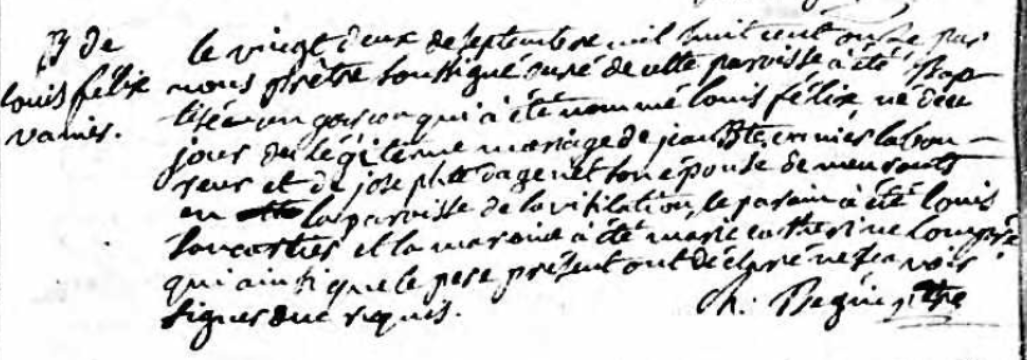 B de
louis félix
vanier.
le vingt deux de septembre mil huit cent onze par
nous prêtre soussigné curé de cette paroisse à été Bap-
tisé un garçon qui à été nommé louis félix né deux
jours du légitime mariage de jean Bte vanier labou-
reur et de josephte dagenet son épouse demeurants
en la paroisse de la visitation, le parain à été louis
et la maraine à été marie catherine
qui ainsi que le pere présent ont déclaré ne sçavoir
signer duc requis.
Ch. Begin ptre